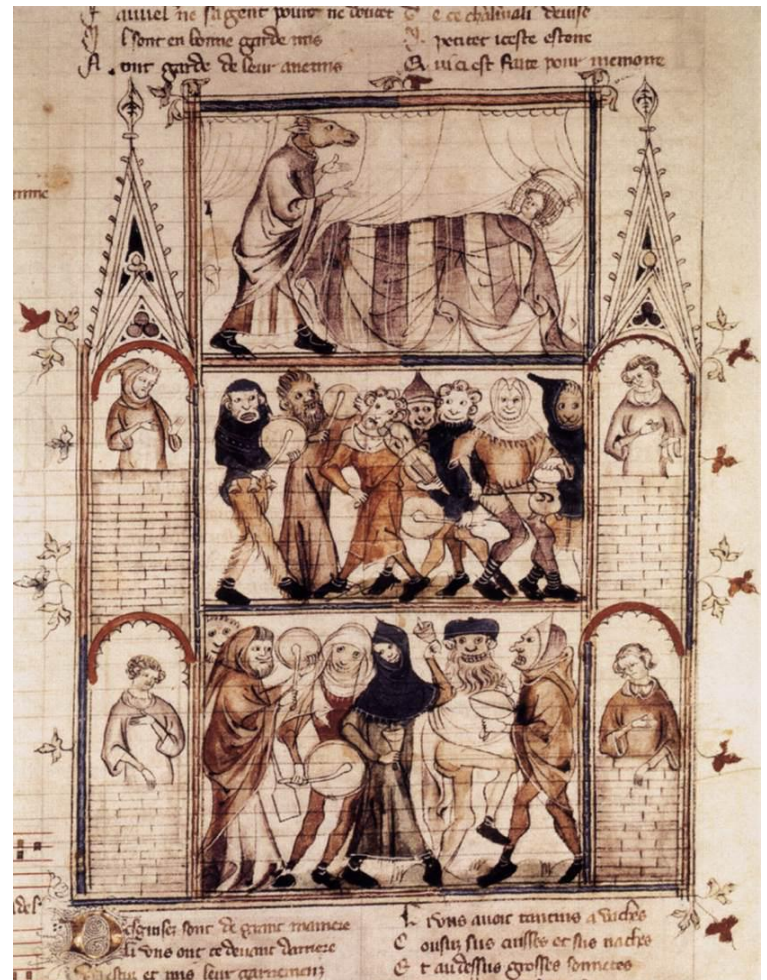 auuel ne sagent pour ne doutet
l sont en bonne garde mis
A ont garde de leur anemis
E ce chalivali deuise
petitet iceste estoire
Q ui ci est faite pour memoire
D esguisez sont de grant maniere
Li vns ont ce deuant darriere
Vestuz et mis leur garnemenz
L i vns auoit tantins a vaches
C ousuz sus cuisses et sus naches
E t au dessus grosses sonnetes